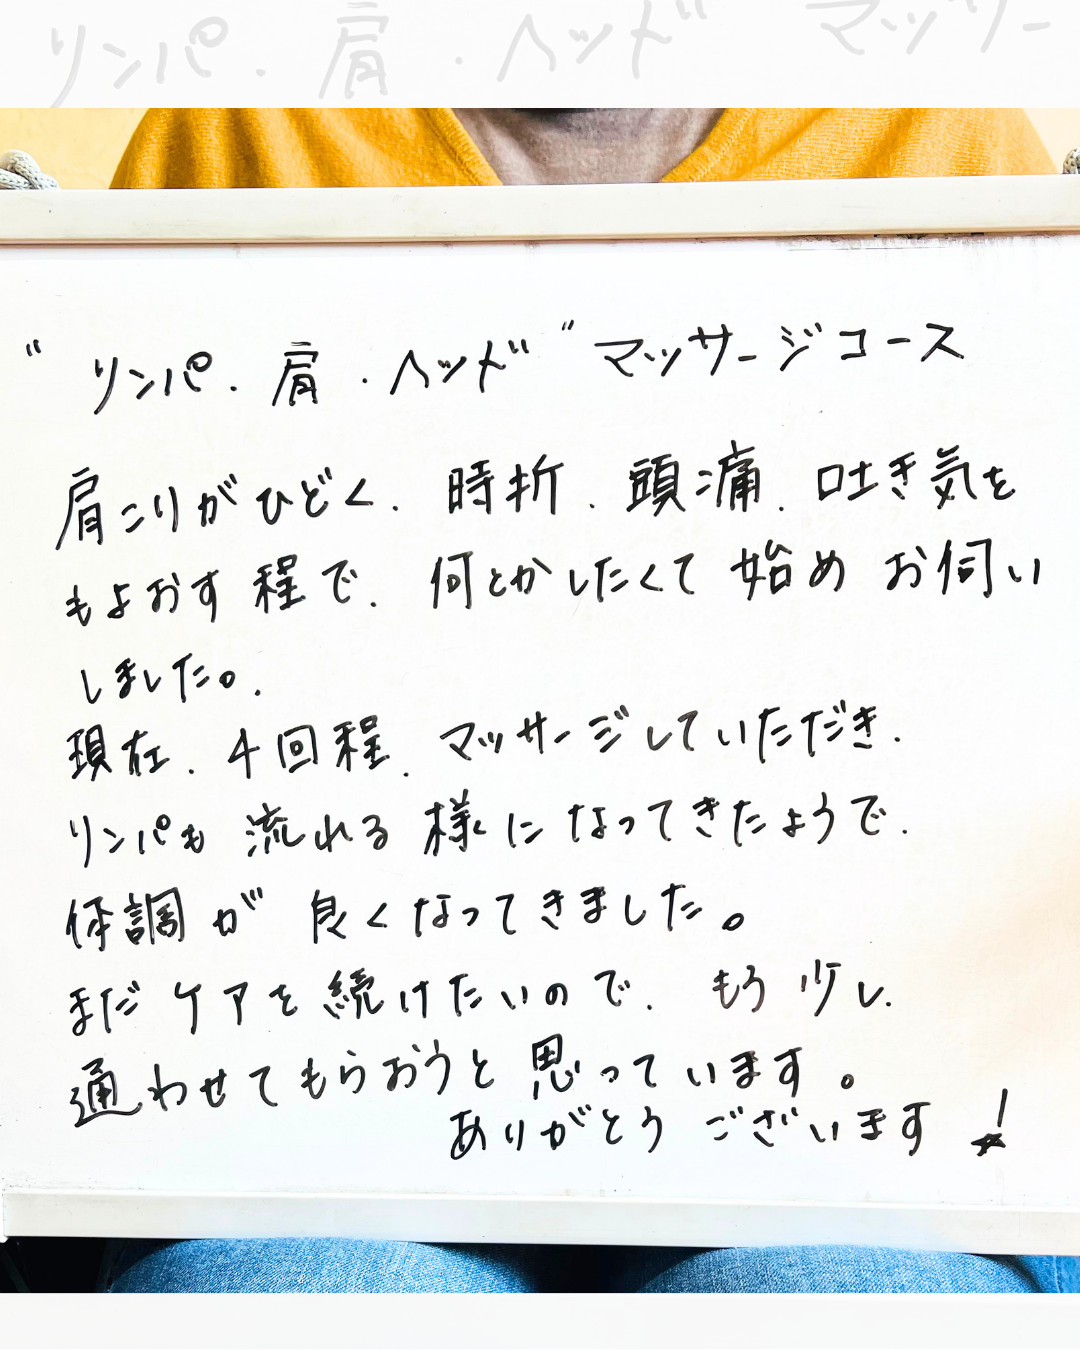 リンパ・肩・ヘッド マッサー
“リンパ・肩・ヘッド”マッサージコース
肩こりがひどく、時折、頭痛、吐き気を
もよおす程で、何とかしたくて始めお伺い
しました。
現在、4回程、マッサージしていただき、
リンパも流れる様になってきたようで、
体調が良くなってきました。
まだケアを続けたいので、もう少し、
通わせてもらおうと思っています。
ありがとうございます!